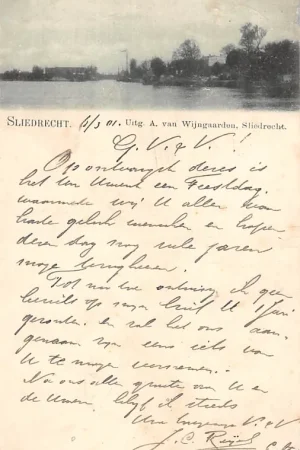 SLIEDRECHT. 5/3 01. Uitg. A. van Wijngaarden, Sliedrecht.
G. V. & V.!
Op ontvangst dezes is
het ten Uwent een Feestdag,
waarmede wij U allen van
harte geluk wenschen en hopen
dezen dag nog vele jaren
moge terugkeeren.
Tot nu toe ontving ik geen
bericht op mijn brief U
gezonden en zal het ons aan-
genaam zijn eens iets van
U te mogen vernemen.
Na ons aller groete aan U en
de Uwen blijf ik steeds
Uw V. & V.
J. C.